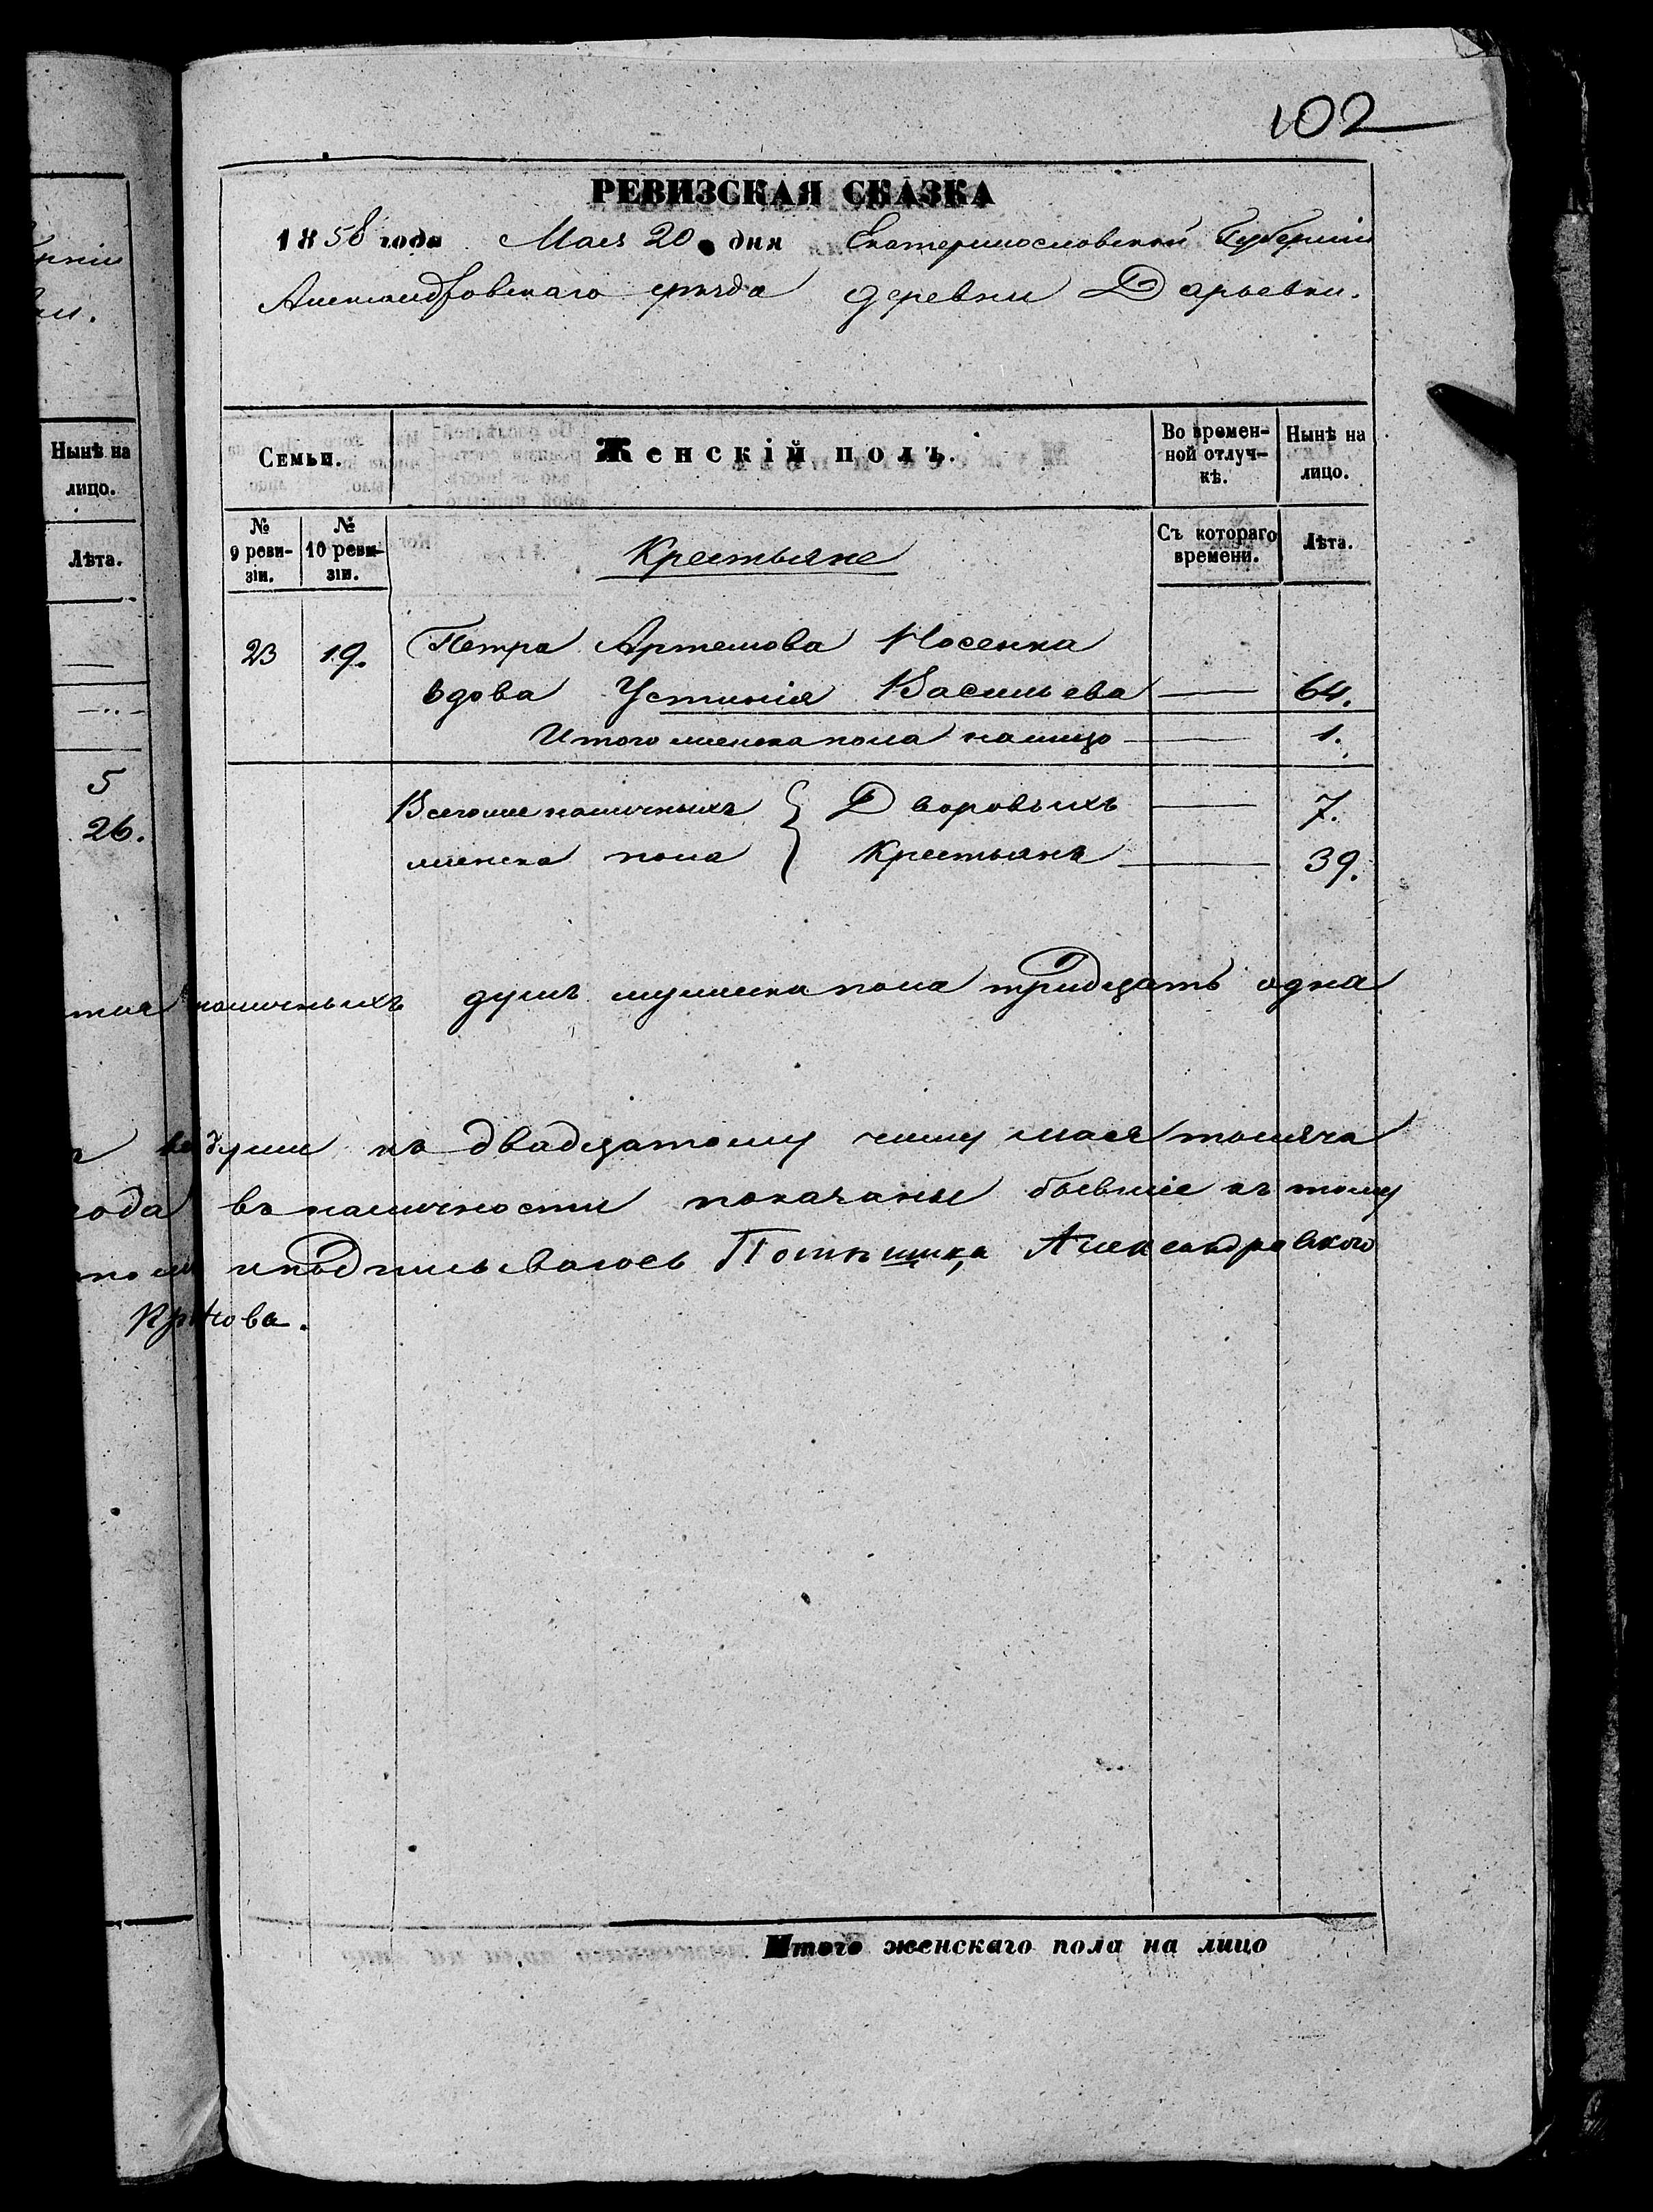 102
РЕВИЗСКАЯ СКАЗКА
1858 года Мая 20 дня Екатеринославской Губернiи
Александровскаго уѣзда деревни Дарьевки.
Нынѣ на лицо.
Лѣта.
5
26.
Семьи.
Женскiй полъ.
Во времен-
ной отлуч-
кѣ.
Нынѣ на
лицо.
№ 9 реви-
зiи.
№ 10 реви-
зiи.
Крестьяне
Съ котораго
времени.
Лѣта.
23 19. Петра Артемова Носенка
вдова Устинiя Васильева — 64.
Итого женска пола налицо — 1.
Всего же наличныхъ { Дворовыхъ — 7.
женска пола { Крестьянъ — 39.
наличныхъ душъ мужеска пола тридцать одна
души по двадцатому числу мая тысяча
года въ наличности показаны бывшiе къ тому
и подписываюсь Помѣщика Александровского
Итого женскаго пола на лицо